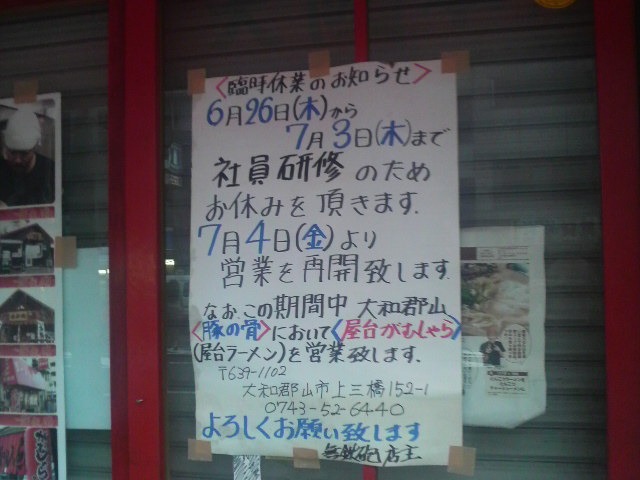 <臨時休業のお知らせ>
6月26日(木)から
7月3日(木)まで
社員研修のため
お休みを頂きます.
7月4日(金)より
営業を再開致します.
なお、この期間中 大和郡山
<豚の骨>において<屋台がむしゃら>
(屋台ラーメン)を営業致します.
〒639-1102
大和郡山市上三橋152-1
0743-52-6440
よろしくお願い致します
無鉄砲 店主